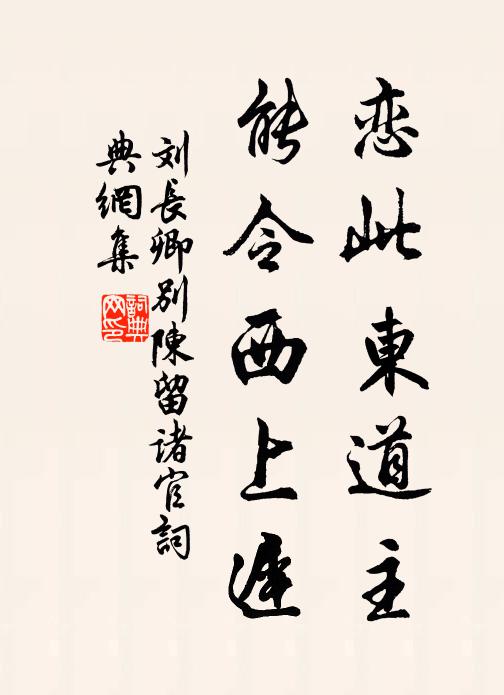 恋此東道主
能令西上遲
刘長卿别陳留諸官詞
典網集
詞典网印